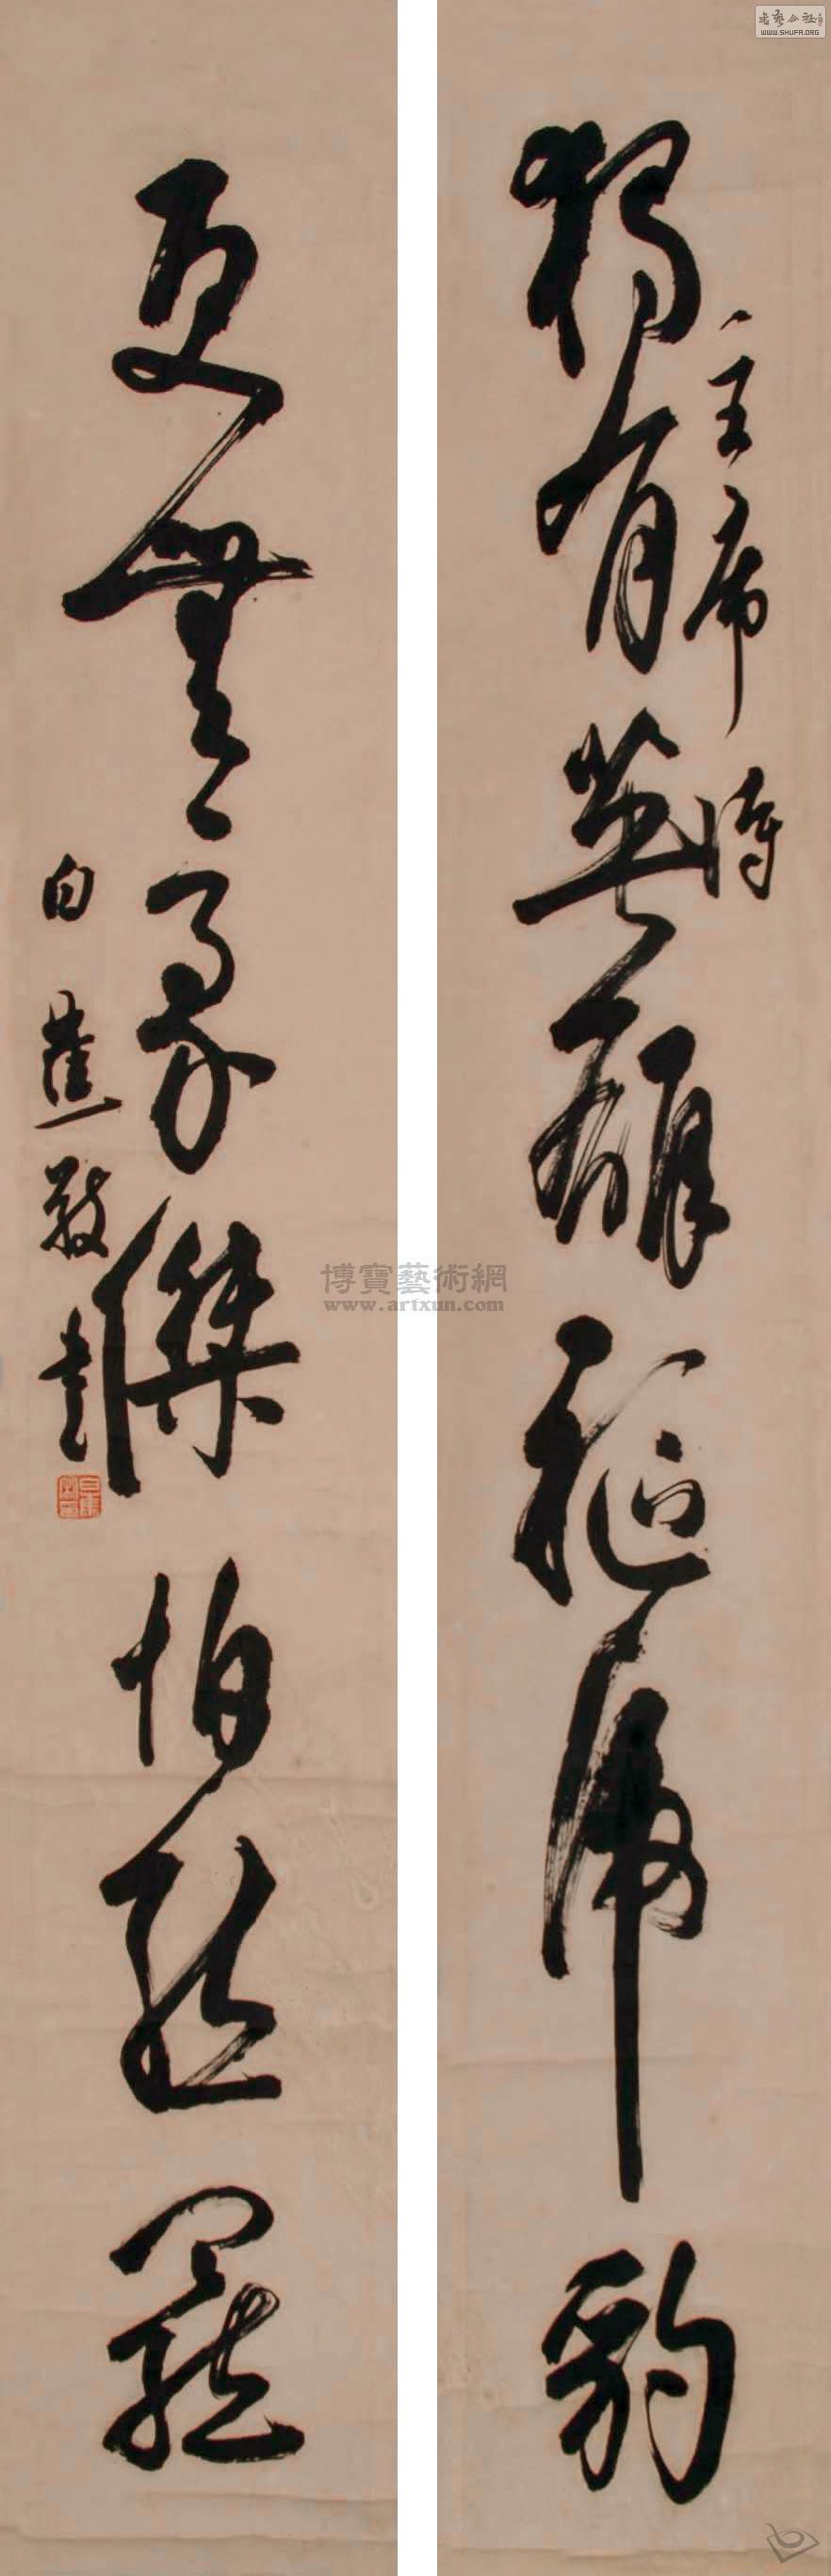 獨有英雄驅虎豹
主席詩
更無豪傑怕熊羆
白蕉敬書
博寶藝術網
www.artxun.com
WWW.SHUFA.ORG